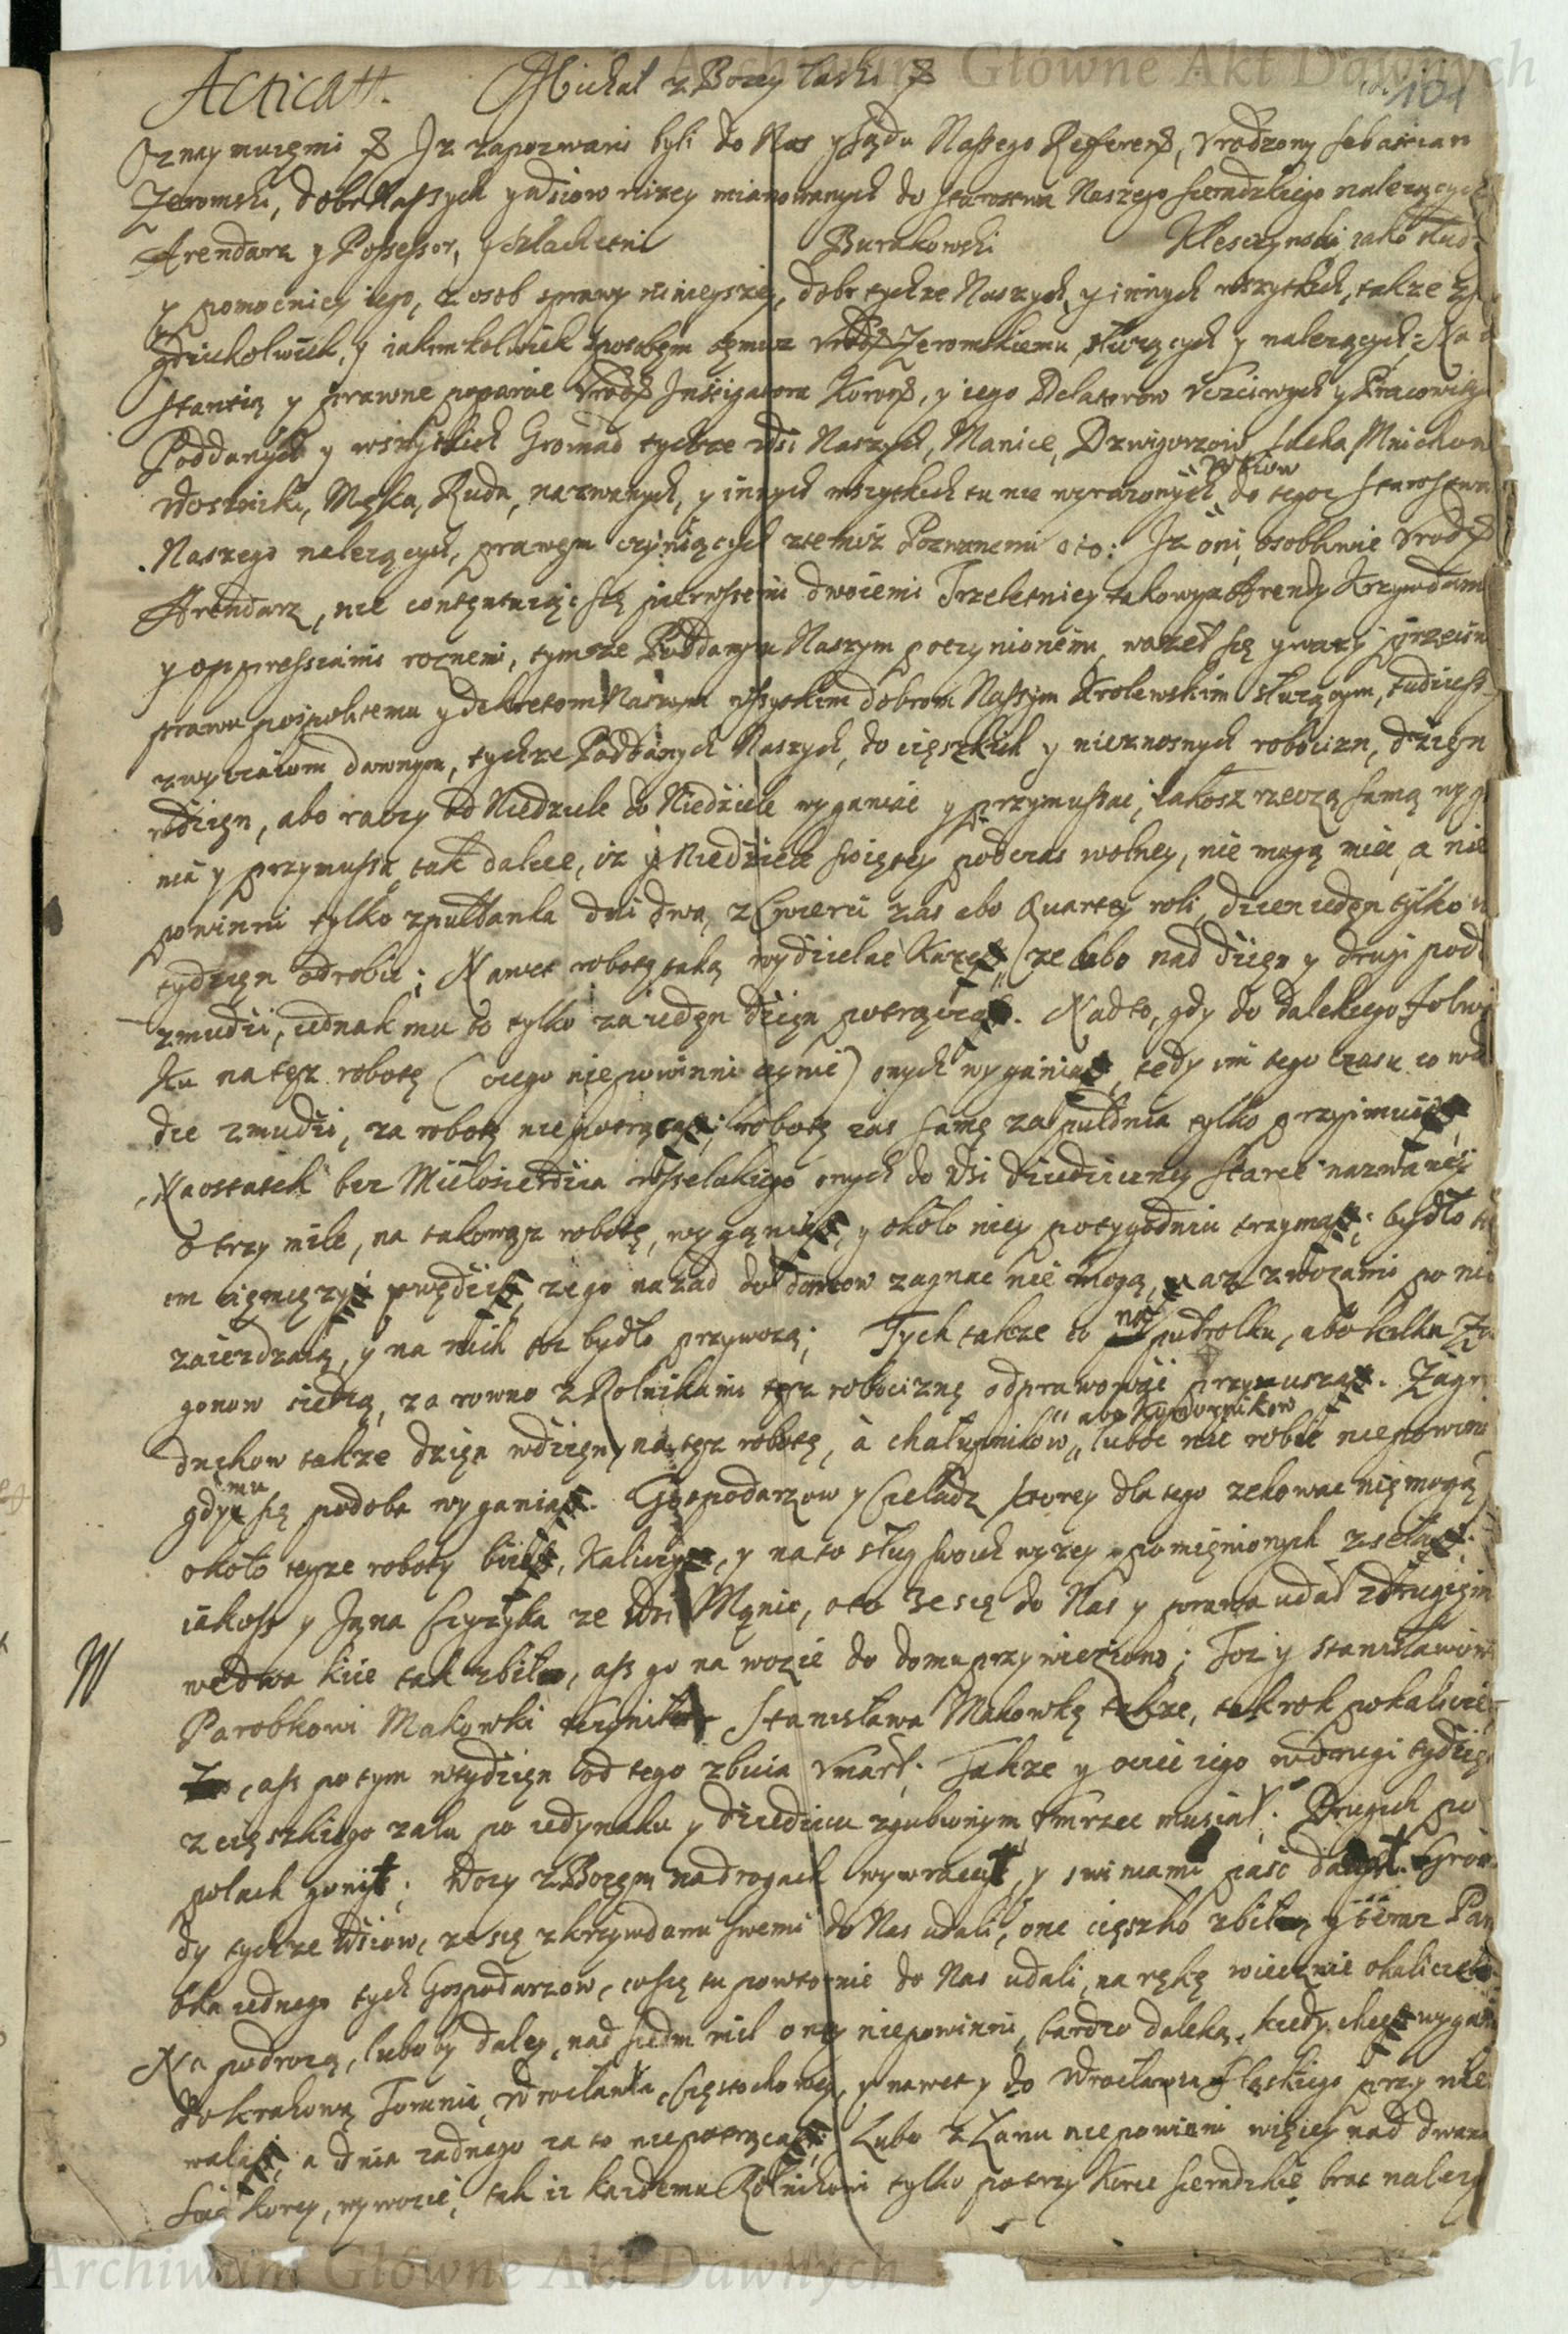 Archiwum Główne Akt Dawnych
101
Acticatt. Michał z Bozey łaski
Oznaymuięmi Iz zapozwani byli do Nas y sądu Naszego Refferen, Urodzony Sebastian
Zeromski, dobr Naszych y Wsiow nizey mianowanych do Starostwa Naszego Sieradzkiego nalezących
Arendarz y Possessor, y Szlachetni Burakowski Kleszczynski, iako słudz
y pomocnicy iego, z osob sprawy ninieyszey, dobr tychze Naszych, y innych wszytkich, takze
gdziekolwiek, y iakimkolwiek sposobem Zeromskiemu słuzących y nalezących; Na
stantią y prawne poparcie Urodz Instigatora Koron, y iego Delatorow Uczciwych y Pracowitych
Poddanych y wszytkich Gromad tychze Wsi Naszych, Manice, Dzwigorzow, Mnichow
Wosniki, Męka, Ruda, nazwanych, y innych wszytkich tu nie wyrazonych Wsiow do tegoz Starostwa
Naszego nalezących, prawem czyniących ztemiz Pozwanemi oto: Iz oni, osobliwie Urodz
Arendarz, nie contentuiąc się pierwszemi dwoiemi Trzeletniey takowey Arendy Krzywdami
y oppressiami roznemi, tymze Poddanym Naszym poczynionemi, wazeł się y wazy przeciw
prawu pospolitemu y dekretom Naszym wszytkim dobrom Naszym Krolewskim słuzącym, tudziesz
zwyczaiom dawnym, tychze Poddanych Naszych, do cięszkich y nieznosnych robocizn, dzięn
wdzięn, abo raczy od Niedziele do Niedziele wyganiac y przymuszac, iakosz rzeczą samą wyga
nia y przymusza, tak dalece, iz y Niedziele swiętey podczas wolney, nie mogą miec, a nie
powinni tylko z pułłanka dni dwa, z Cwierci zas abo Quarty roli dzien ieden tylko w
tydzięn odrobic; Nawet robotę taką wydzielac Kaze, ze lubo nad dzięn y drugi podc
zmudzi, iednak mu to tylko za iedęn dzięn potrąca. Nadto, gdy do dalekiego folwar
ku na tęz robotę (czego nie powinni czynic) onych wygania, tedy im tego czasu co w
dze zmudzi, za robotę nie potrąca; robotę zas samę za pułdnia tylko przyimuie,
Naostatek bez Miłosierdzia wszelakiego onych do Wsi dziedziczney Starce nazwaney
o trzy mile, na takowąz robotę, wygania, y około niey po tygodniu trzyma; bydło
im pędzi, ze go nazad do domow zagnac nie mogą, az z wozami po nie
zaiezdzaią, y na nich toz bydło przywozą; Tych takze co na pułrolku, abo kilku Za
gonow siedzą, zarowno z Rolnikami tęz robociznę odprawowac przymusza. Zagro
dnikow takze dzięn wdzięn, na tęz robotę, a chałupnikow abo Komornikow, luboc nic robic nie powinni
gdy mu się podoba wygania. Gospodarzow y Czeladz ktorey dlatego zchowac nie mogą
około teyze roboty biie, Kaliczy, y na to sług swoich wyzey pomięnionych zseła;
iakosz y Jana Czyzyka ze Wsi Mąnic, oto ze się do Nas y prawa udał z drugięmi
we dwa kiie tak zbił, asz go na wozie do domu przywieziono; Toz y Stanisławowi
Parobkowi Makowki uczynił Stanisława Makowkę takze, tak rok pokalicz
, asz potym wtydzięn od tego zbicia Umarł; Takze y ociec iego wdrugi tydzień
z cięszkiego zalu po iedynaku y dziedzicu zgubionym, Umrzec musiał; Drugich po
polach gonił; Wozy z Bozęm na drogach wywracał, y swiniami pasc dawał. Groma
dy tychze Wsiow, ze się z krzywdami swemi do Nas udali, one cięszko zbił y teraz Par
obka iednego tych Gospodarzow, co się tu powtornie do Nas udali, na rękę wiecznie okaliczeł
Na podrozą, luboby daley, nad siedm mil oney niepowinni, bardzo daleką, kiedy chce wygania
do Krakowa, Torunia, Wrocławka, Częstochowy, y nawet y do Wrocławia Sląskiego przy nie
wala, a dnia zadnego za to nie potrąca; Lubo z Łanu niepowinni więcey nad dwana
scie korcy, wywozic, tak iz kazdemu Rolnikowi tylko po trzy Korce sieradzkie brac nalezy
Archiwum Główne Akt Dawnych